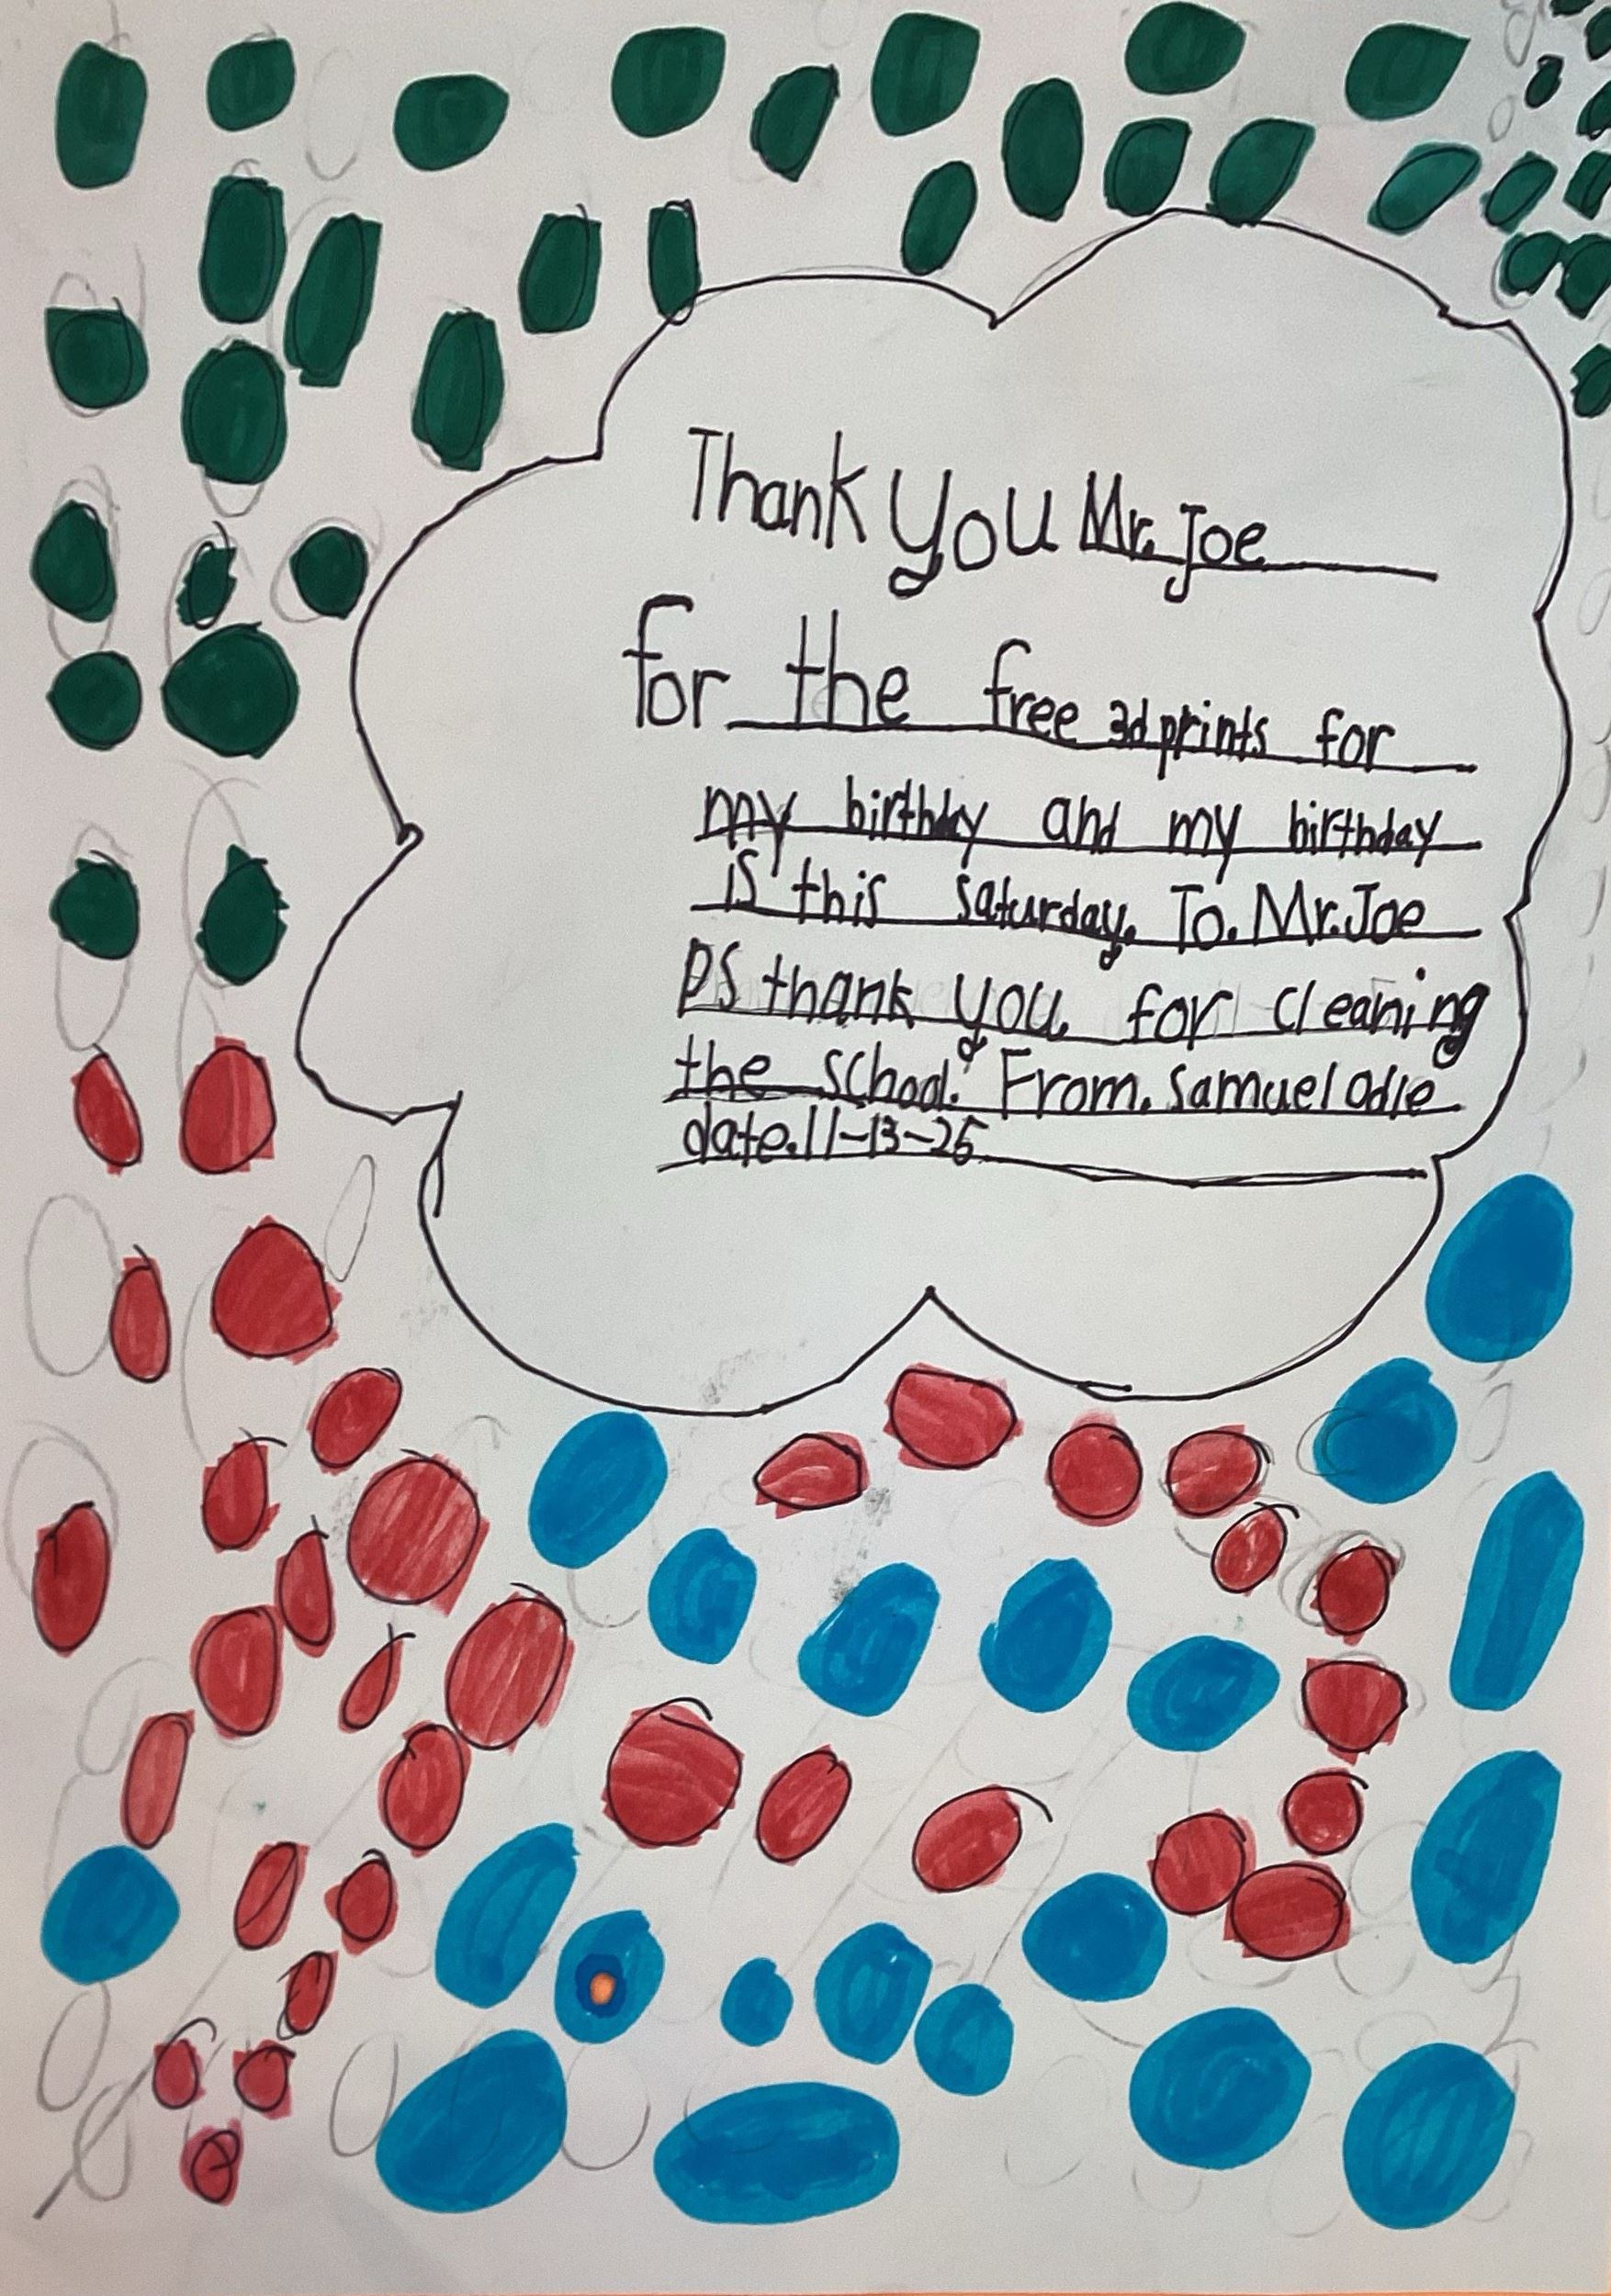 Thank you Mr. Joe
for the free 3d prints for
my birthday and my birthday
is this saturday. To. Mr. Joe
PS thank you. for cleaning
the school. From. Samuel Odle
date. 11-13-25